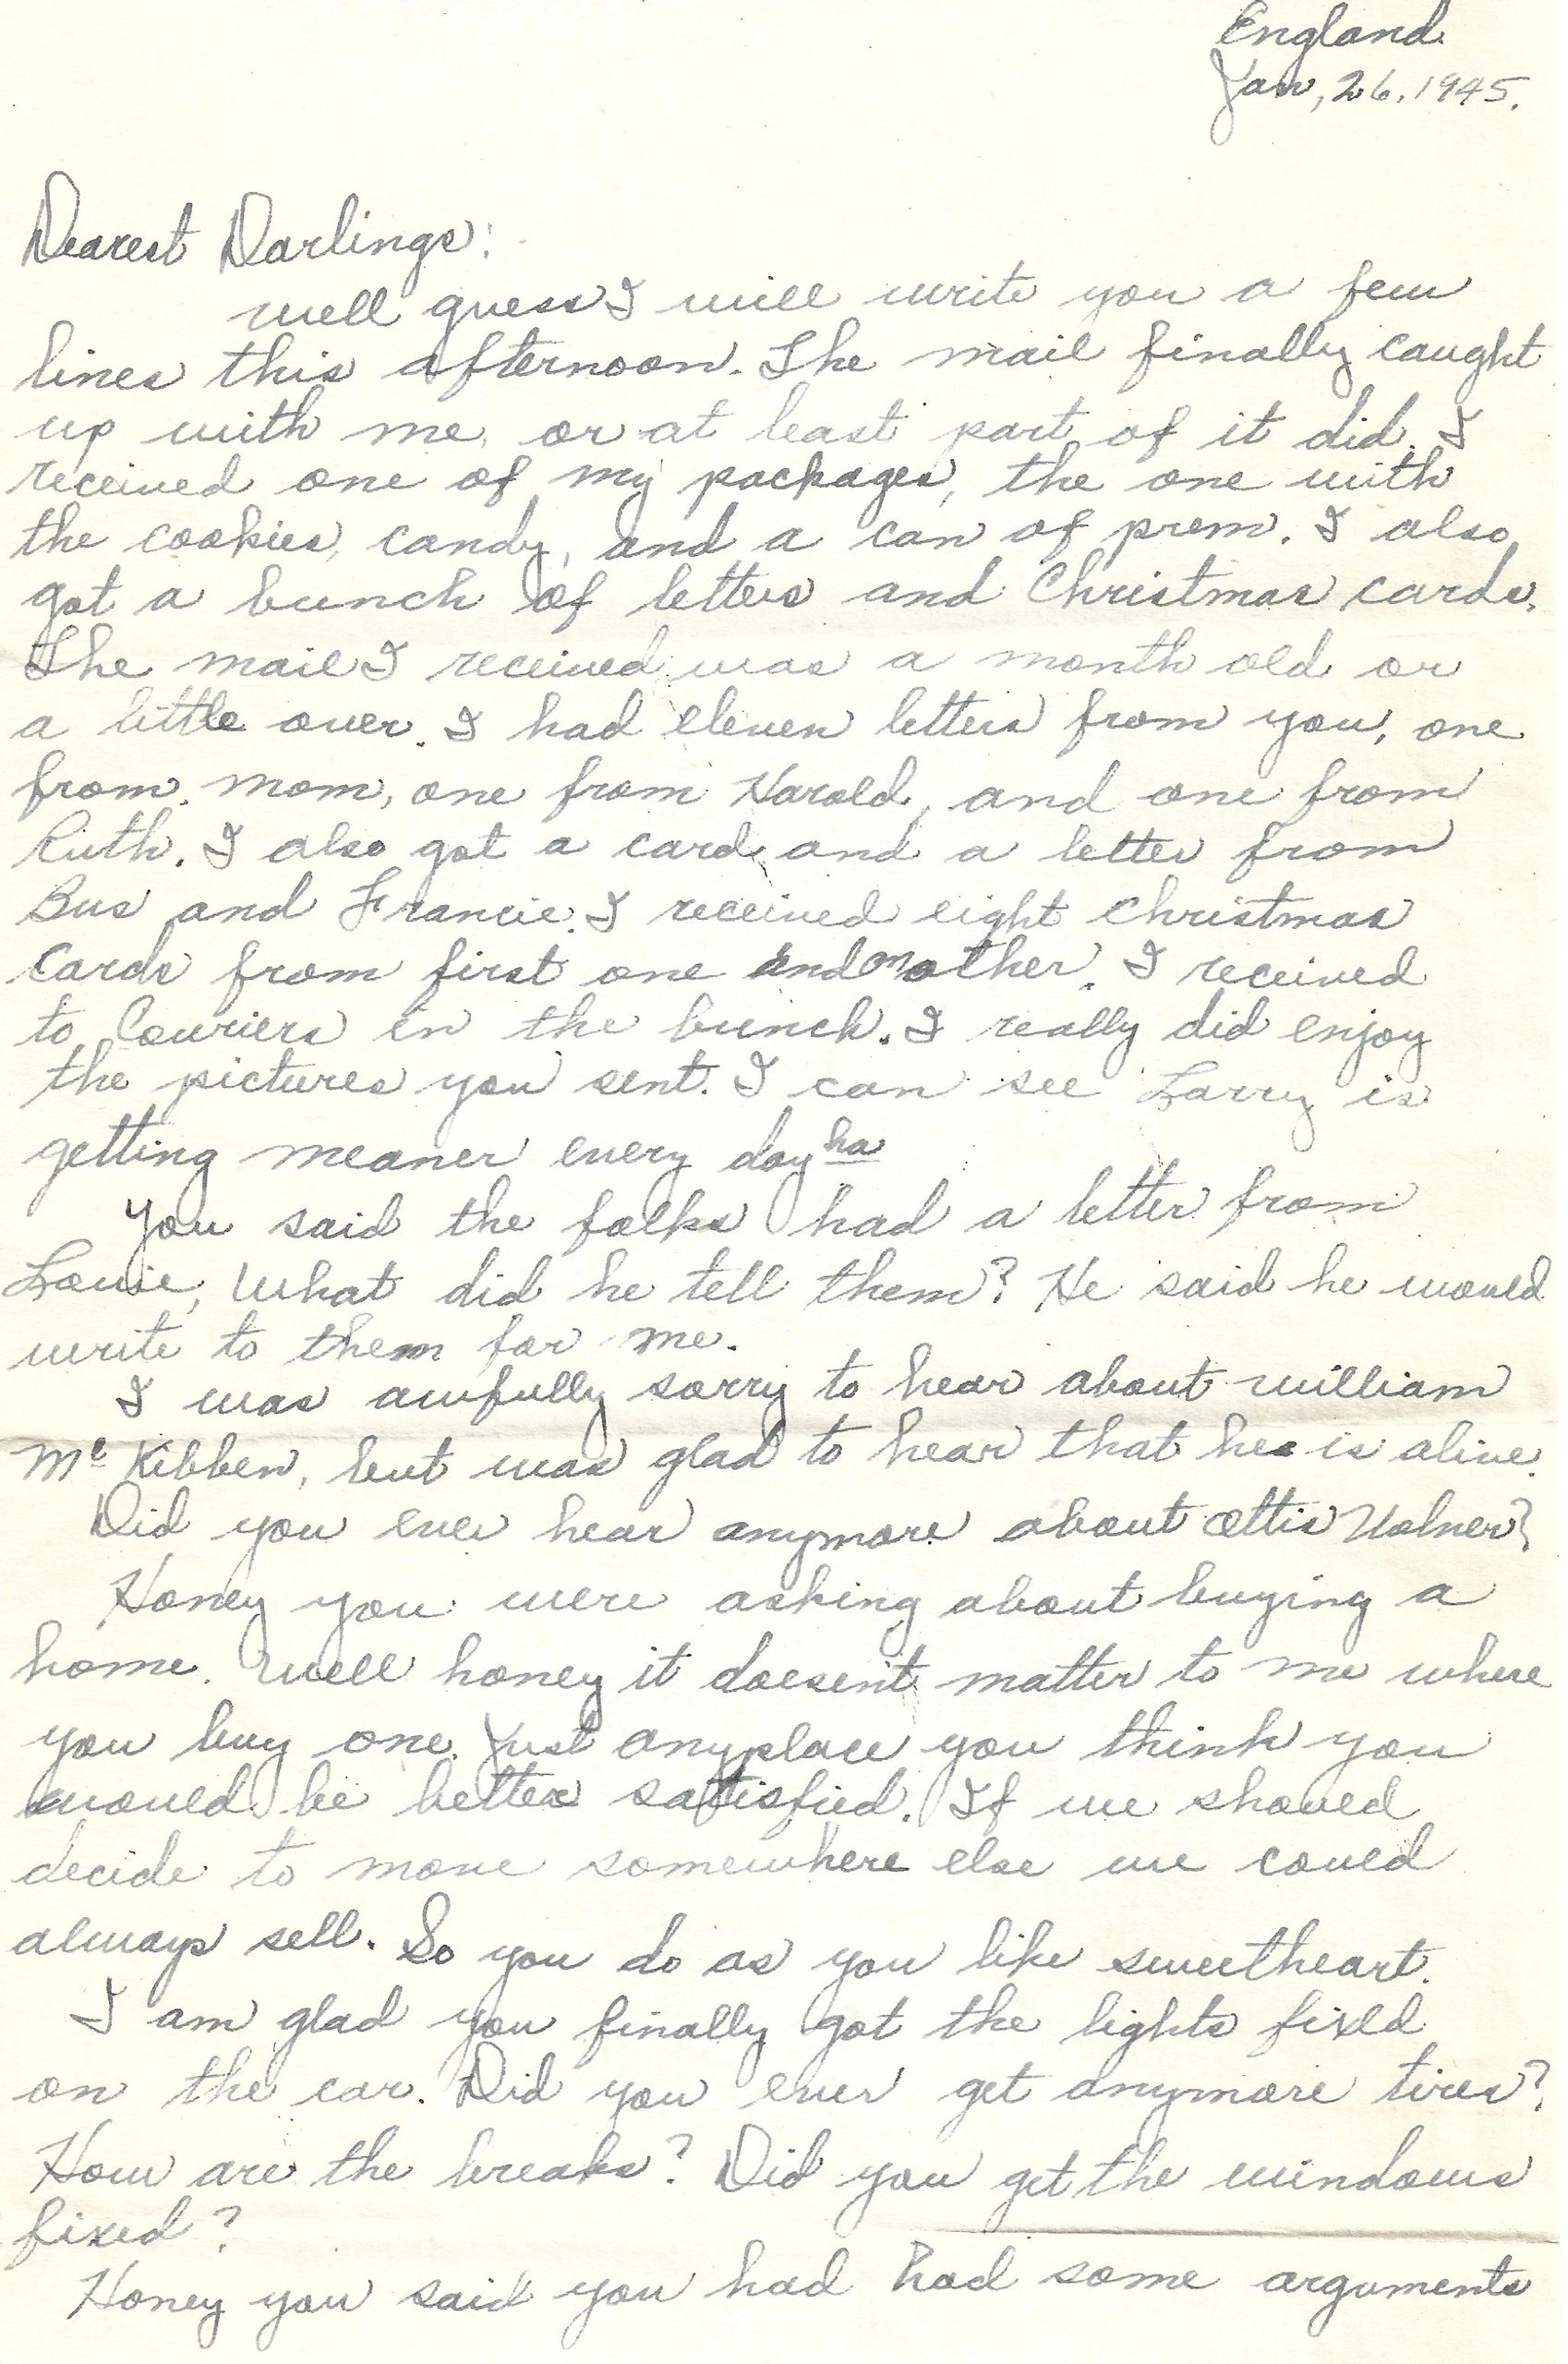 England.
Jan, 26. 1945.
Dearest Darlings:
well guess I will write you a few
lines this afternoon. The mail finally caught
up with me, or at least part of it did. I
received one of my packages, the one with
the cookies, candy, and a can of prem. I also
got a bunch of letters and Christmas cards.
The mail I received was a month old or
a little over. I had eleven letters from you, one
from mom, one from Harold, and one from
Ruth. I also got a card and a letter from
Bus and Francie. I received eight Christmas
Cards from first one and another. I received
to Couriers in the bunch. I really did enjoy
the pictures you sent. I can see Larry is
getting meaner every day ha
You said the folks had a letter from
Louie, What did he tell them? He said he would
write to them for me.
I was awfully sorry to hear about william
Mc Kibben, but was glad to hear that he is alive.
Did you ever hear anymore about Ottis
Honey you were asking about buying a
home. Well honey it doesent matter to me where
you buy one. Just anyplace you think you
would be better satisfied. If we should
decide to move somewhere else we could
always sell. So you do as you like sweetheart.
I am glad you finally got the lights fixed
on the car. Did you ever get anymore tires?
How are the breaks? Did you get the windows
fixed?
Honey you said you had had some arguments